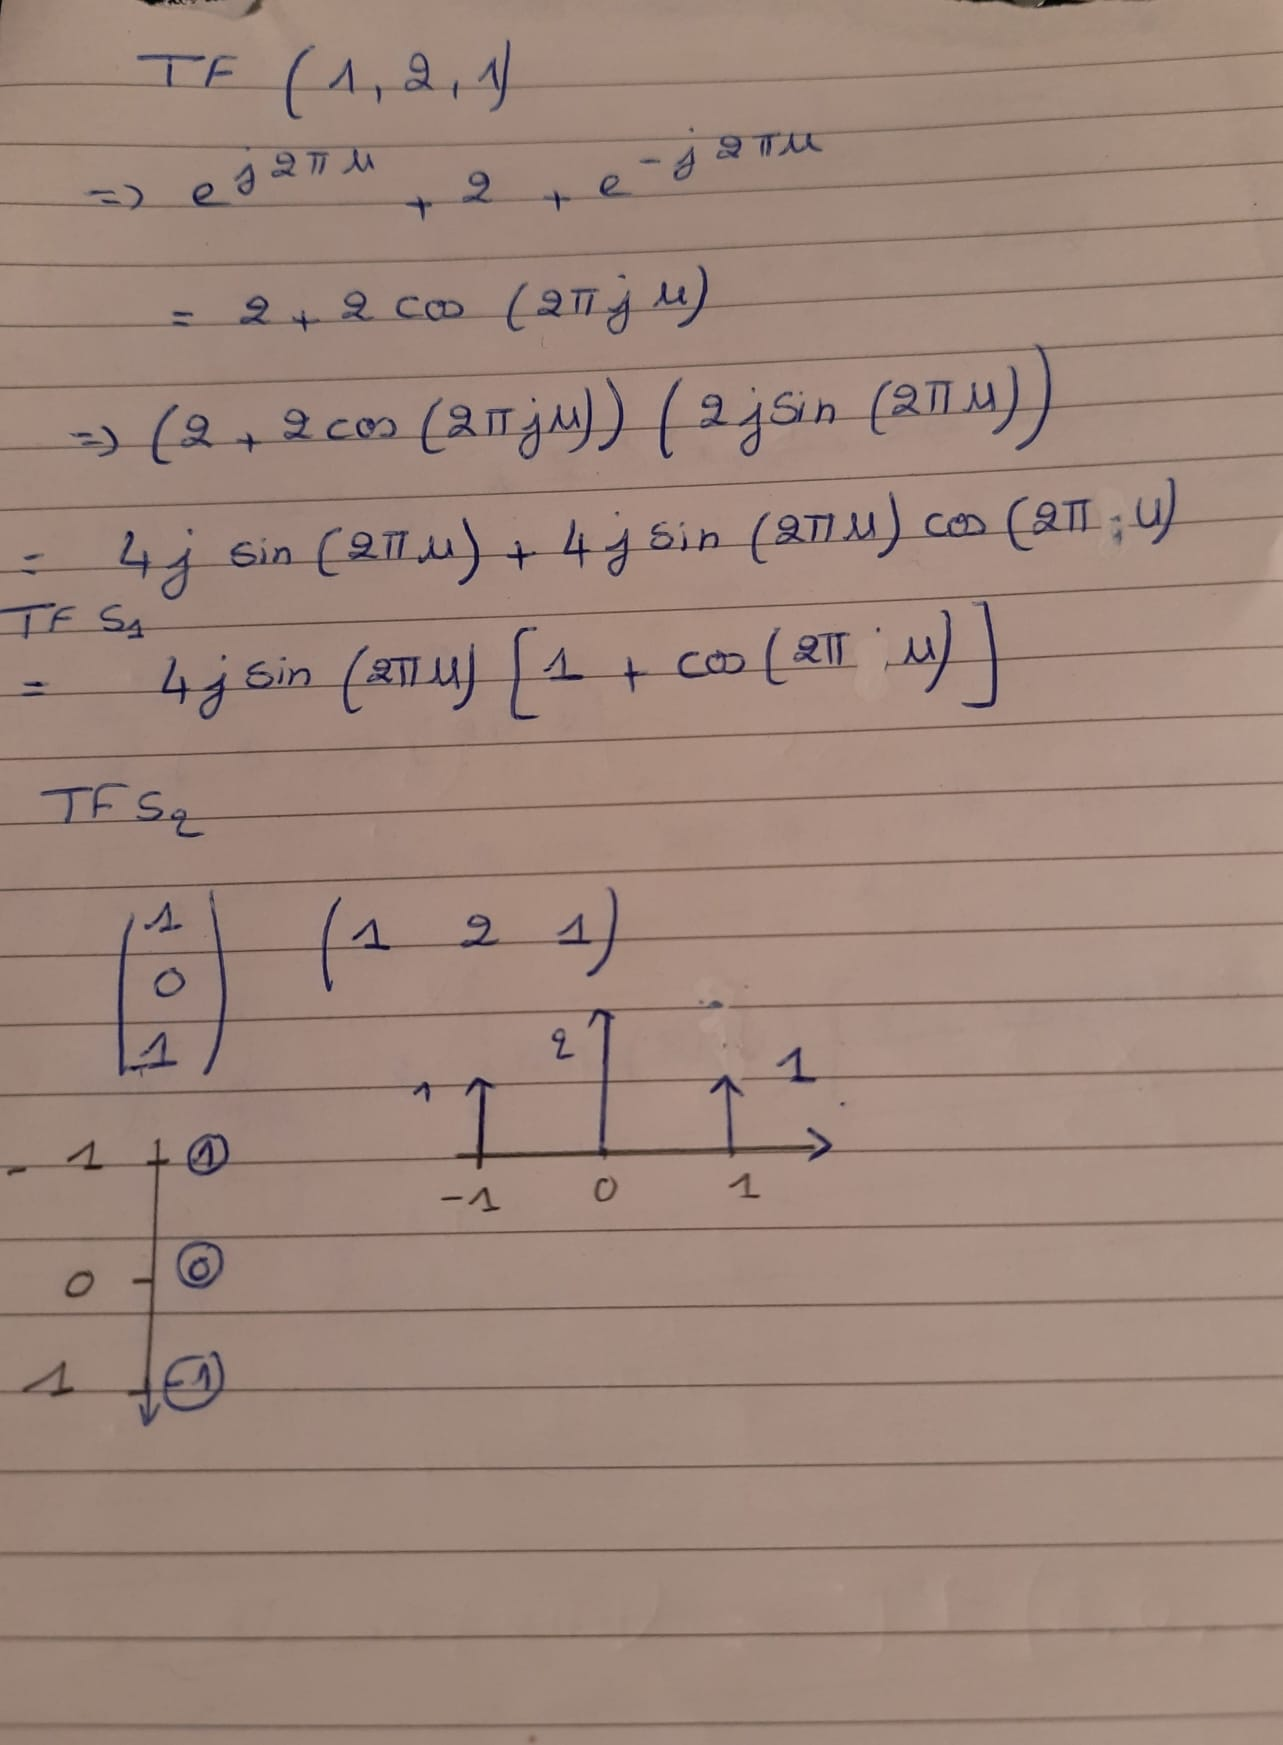 TF (1, 2, 1)
=> e^{j2πu} + 2 + e^{-j2πu}
= 2 + 2 cos (2πju)
=> (2 + 2 cos (2πju)) (2j sin (2πu))
= 4j sin (2πu) + 4j sin (2πu) cos (2π u)
TF S₁
= 4j sin (2πu) [1 + cos (2π u)]
TF S₂
(1 0 1) (1 2 1)
2
1 1
-1 0 1
-1 ①
0 ⓪
1 (-1)